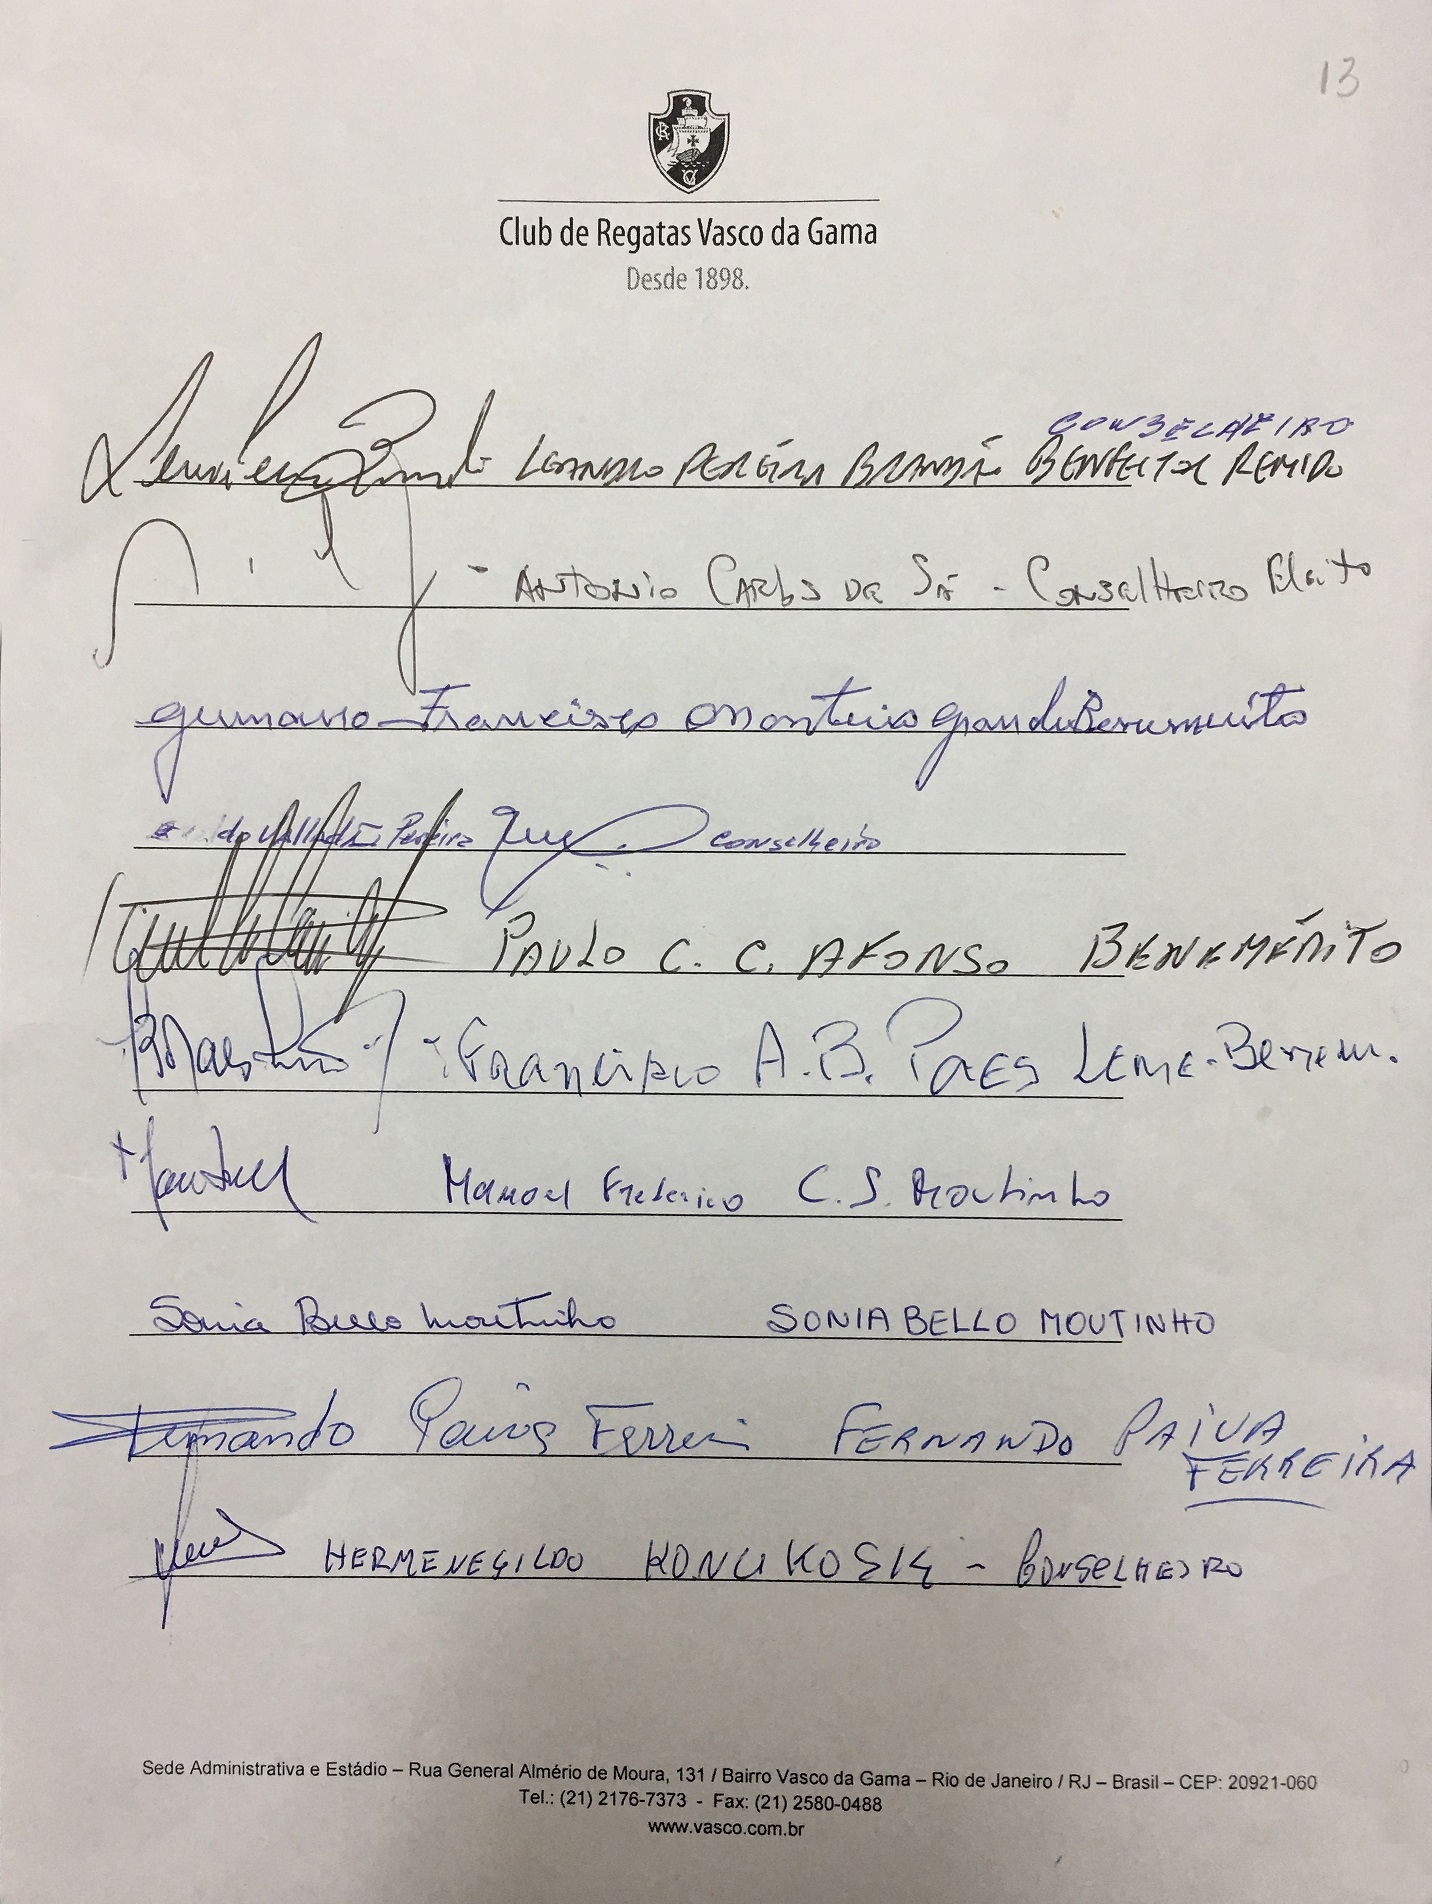 13
Club de Regatas Vasco da Gama
Desde 1898.
CONSELHEIRO
LEANDRO PEREIRA BRANDÃO BENFEITOR REMIDO
- ANTONIO CARLOS DE SÁ - Conselheiro Eleito
germano Francisco Monteiro grande Benemerito
do Valladão Pereira conselheiro
PAULO C. C. AFONSO BENEMÉRITO
Francisco A. B. PAES LEME - Benem.
Manoel Frederico C. S. Moutinho
Sonia Bello Moutinho SONIA BELLO MOUTINHO
Fernando Paiva Ferreira FERNANDO PAIVA
FERREIRA
HERMENEGILDO KONCIKOSKI - CONSELHEIRO
Sede Administrativa e Estádio – Rua General Almério de Moura, 131 / Bairro Vasco da Gama – Rio de Janeiro / RJ – Brasil – CEP: 20921-060
Tel.: (21) 2176-7373 - Fax: (21) 2580-0488
www.vasco.com.br